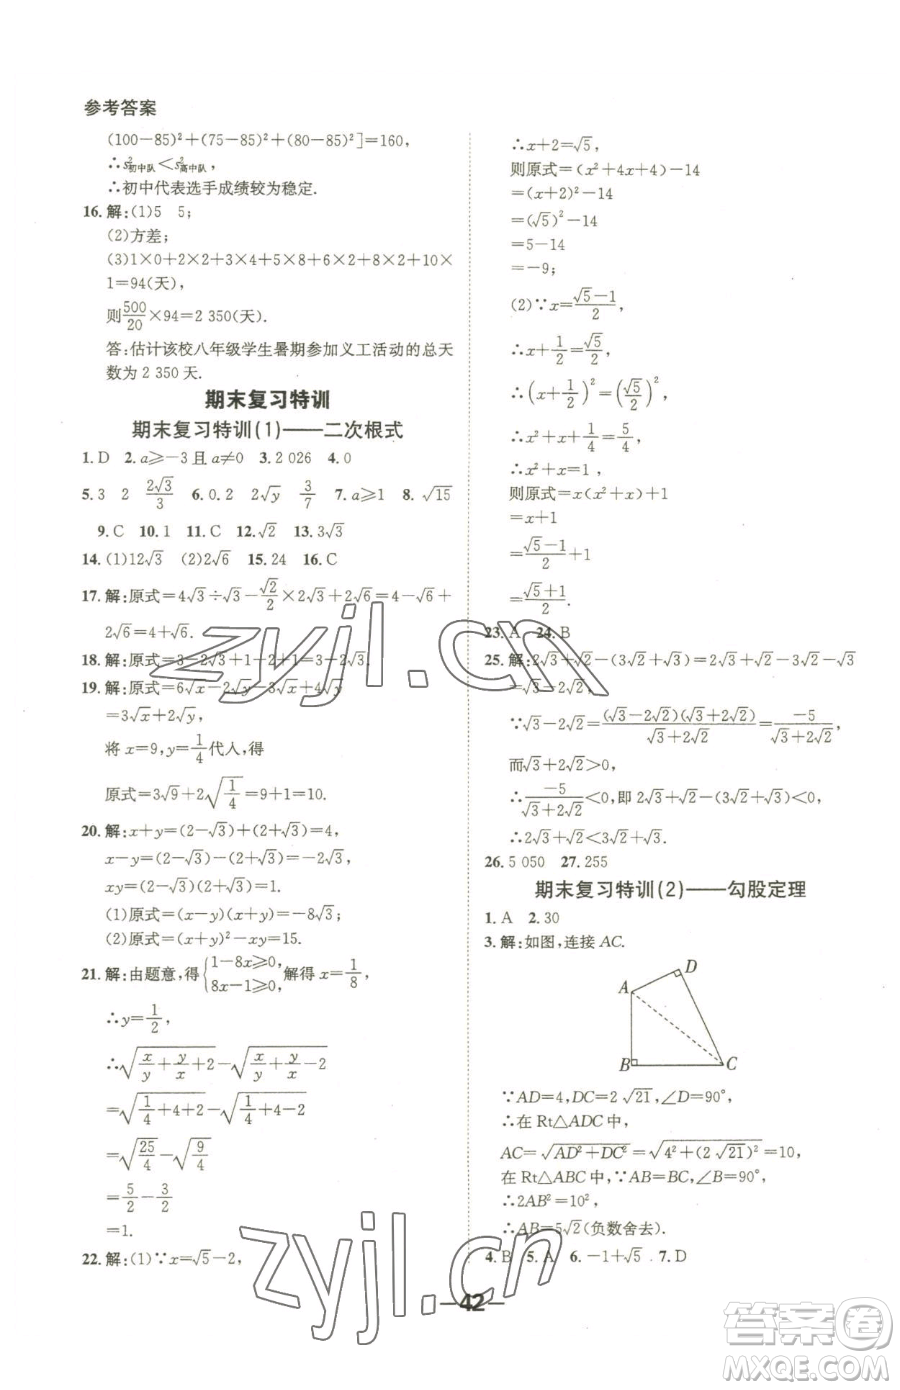 参考答案
(100-85)²+(75-85)²+(80-85)²]=160,
∴s²初中队<s²高中队,
∴初中代表选手成绩较为稳定.
16.解:(1)5 5;
(2)方差;
(3)1×0+2×1+3×3+4×6+5×4+6×2+10×
1=94(天),
则500/20×94=2 350(天).
答:估计该校八年级学生暑期参加义工活动的总天
数为 2 350 天.
期末复习特训
期末复习特训(1)——二次根式
1.D 2.a⩾-3且a≠0 3.2 026 4.0
5.3 2 2√3/3 6.0.2 2√y 3/7 7.a⩾1 8.√15
9.C 10.1 11.C 12.√2 13.3√3
14.(1)12√3 (2)2√6 15.24 16.C
17.解:原式=4√3÷√3-√2/2×2√3+2√6=4-√6+
2√6=4+√6.
18.解:原式=3-2√3+1-2+1=3-2√3.
19.解:原式=6√x-2√y-3√x+4√y
=3√x+2√y,
将x=9,y=1/4代人,得
原式=3√9+2√(1/4)=9+1=10.
20.解:x+y=(2-√3)+(2+√3)=4,
x-y=(2-√3)-(2+√3)=-2√3,
xy=(2-√3)(2+√3)=1.
(1)原式=(x+y)(x-y)=-8√3;
(2)原式=(x+y)²-xy=15.
21.解:由题意,得{1-8x⩾0, 8x-1⩾0, 解得x=1/8,
∴y=1/2,
∴√(x/y+y/x+2)-√(x/y+y/x-2)
=√(1/4+4+2)-√(1/4+4-2)
=√(25/4)-√(9/4)
=5/2-3/2
=1.
22.解:(1)∵x=√5-2,
∴x+2=√5,
则原式=(x²+4x+4)-14
=(x+2)²-14
=(√5)²-14
=5-14
=-9;
(2)∵x=(√5-1)/2,
∴x+1/2=√5/2,
∴(x+1/2)²=(√5/2)²,
∴x²+x+1/4=5/4,
∴x²+x=1,
则原式=x(x²+x)+1
=x+1
=(√5-1)/2+1
=(√5+1)/2.
23.A 24.B
25.解:2√3+√2-(3√2+√3)=2√3+√2-3√2-√3
=√3-2√2,
∵√3-2√2=(√3-2√2)(√3+2√2)/(√3+2√2)=-5/(√3+2√2),
而√3+2√2>0,
∴-5/(√3+2√2)<0,即2√3+√2-(3√2+√3)<0,
∴2√3+√2<3√2+√3.
26.5 050 27.255
期末复习特训(2)——勾股定理
1.A 2.30
3.解:如图,连接AC.
D
A
B
C
∵AD=4,DC=2√21,∠D=90°,
∴在Rt△ADC中,
AC=√(AD²+DC²)=√(4²+(2√21)²)=10,
在Rt△ABC中,∵AB=BC,∠B=90°,
∴2AB²=10²,
∴AB=5√2(负数舍去).
4.B 5.A 6.-1+√5 7.D
—42—
zyjl.cn
zyjl.cn
答案圈
MXQE.COM